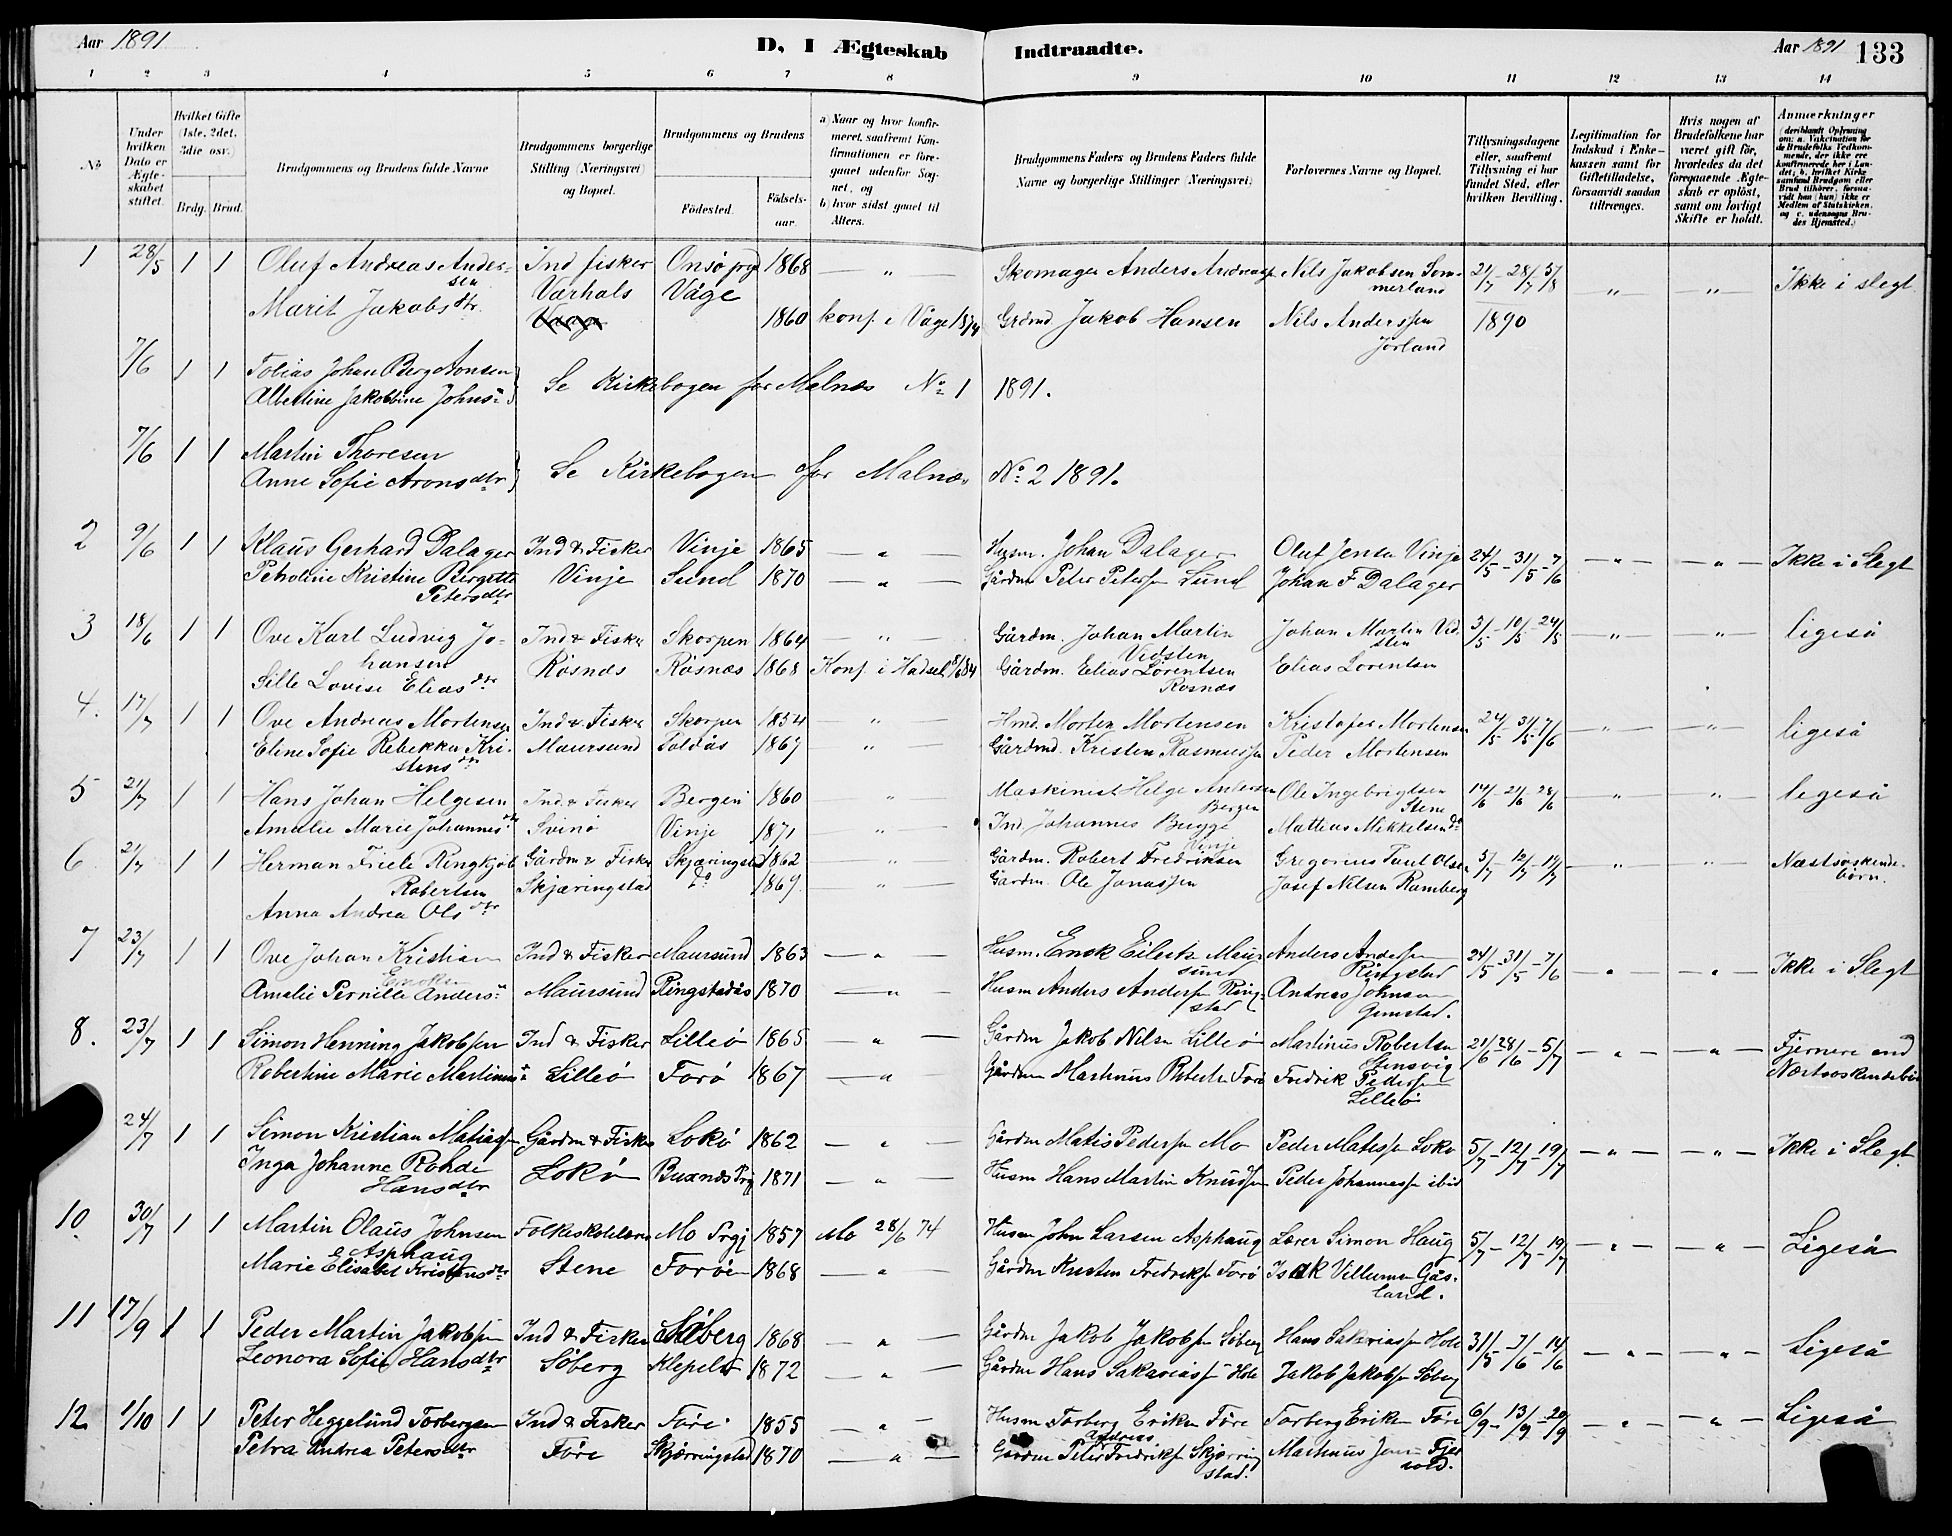 Aar 1891
D, I Ægteskab Indtraadte.
Aar 1891 133
1 2 3 4 5 6 7 8 9 10 11 12 13 14
No
Under hvilken Dato er Ægteskabet stiftet.
Hvilket Gifte (1ste, 2det, 3die osv.)
Brdg. Brud.
Brudgommens og Brudens fulde Navne
Brudgommens borgerlige Stilling (Næringsvei) og Bopæl.
Brudgommens og Brudens
Födested. Födselsaar.
a) Naar og hvor konfirmeret, saafremt Konfirmationen er foregaaet udenfor Sognet, og
b) hvor sidst gaaet til Alters.
Brudgommens Faders og Brudens Faders fulde Navne og borgerlige Stillinger (Næringsvei)
Forlovernes Navne og Bopæl.
Tillysningsdagene eller, saafremt Tillysning ei har fundet Sted, efter hvilken Bevilling.
Legitimation for Indskud i Enkekassen samt for Giftetilladelse, forsaavidt saadan tiltrænges.
Hvis nogen af Brudefolkene har været gift för, hvorledes da det foregaaende Ægteskab er oplöst, samt om lovligt Skifte er holdt.
Anmærkninger (deriblandt Oplysning om: a. Vaksination for de Brudefolks Vedkommende, der ikke ere konfirmerede her i Landet; b. hvilket Kirkesamfund Brudgom eller Brud tilhörer, forsaavidt han (hun) ikke er Medlem af Statskirken, og c. udensogns Brudes Hjemsted.)
1 28/5 1 1 Oluf Andreas Andersen Ind fisker Onsø prgj 1868 — " — Skomager Anders Andreass Nils Jakobsen Sommerland 21/7 - 28/7 5/8 " " Ikke i slegt
Marit Jakobsdtr. Varhals Våge 1860 konf. i Våge Grdmd Jakob Hansen Nils Anderssen Jørland 1890
7/6 1 1 Tobias Johan Berg Aronsen
Albertine Jakobbine Johns" } Se Kirkebogen for Malnæs No 1 1891.
7/6 1 1 Martin Thoresen
Anne Sofie Aronsdtr } Se Kirkebogen for Malnæs No 2 1891.
2 9/6 1 1 Klaus Gerhard Dalager Ind & Fisker Vinje 1865 — " — Husm. Johan Dalager Oluf Jensen Vinje 24/5 - 31/5 - 7/6 — " — — " — Ikke i Slegt
Petroline Kristine Bergette Petersdtr Vinje Sund 1870 — " — Gårdm Peter Peterss Sund Johan F Dalager
3 18/6 1 1 Ove Karl Ludvig Johansen Ind & Fisker Skorpen 1864 — " — Gårdm. Johan Martin Vidsten Johan Martin Vidsten 3/5 - 10/5 24/5 — " — — " — ligeså
Sille Lovise Eliasdtr Røsnæs Røsnæs 1868 Konf. i Hadsel 8/6 84 Gårdm. Elias Lorentsen Rosnæs Elias Lorentsen
4. 17/7 1 1 Ove Andreas Mortensen Ind & Fisker Skorpen 1854 — " — Hmd. Morten Mortensen Kristofer Mortensen 24/5 31/5 7/6 — " — — " — ligeså
Eline Sofie Rebekka Kristensdtr Maursund Toldås 1867 " Gårdmd. Kristen Rasmussen Peder Mortensen
5 21/7 1 1 Hans Johan Helgesen Ind & Fisker Bergen 1860 — " Maskinist Helge Antersen Bergen Ole Ingebrigtsen Stene 14/6 21/6 28/6 — " — — " — ligeså
Amalie Marie Johannesdtr Svinø Vinje 1871 — " — Ind. Johannes Bugge Vinje Mathias Mikkelsen do
6 21/7 1 1 Herman Friele Ringkjøb Robertsen Gårdm & Fisker Skjæringstad 1862 " Gårdm. Robert Fredriksen Gregorius Paul Olsen 5/7 - 12/7 - 19/7 — " — — " — Næstsøskendebørn.
Anna Andrea Olsdtr Skjæringstad do 1869. — " — Gårdm. Ole Jonassen Josef Nilsen Ramberg
7 23/7 1 1 Ove Johan Kristian Enoksen Ind & Fisker Maursund 1863 — " — Husm. Enok Eilerts Maursund Anders Anders Ringstad 24/5 - 31/5 - 7/6 — " — — " — Ikke i Slegt
Amalie Pernille Anders" Maursund Ringstadås 1870 — " — Husm Anders Anders Ringstad Andreas Johnsen Grimstad.
8. 23/7 1 1 Simon Henning Jakobsen Ind & Fisker Lilleø 1865 — " — Gårdm Jakob Nilsen Lilleø Martinus Robertsen Stensvig 21/6 28/6 - 5/7 — " — — " — Fjernere end Næstsøskendebør
Robertine Marie Martinus" Lilleø Forø 1867 — " Gårdm Martinus Roberts Forø Fredrik Peders Lilleø
24/7 1 1 Simon Kristian Matiass Gårdm & Fisker Lokø 1862 — " — Gårdm Matis Peders Mo Peder Matiss Lokø 5/7 - 12/7 - 19/7 — " — — " — Ikke i Slegt
Inga Johanne Rohde Hansdtr Lokø Buxnæs Prgj 1871 — " — Husm Hans Martin Knuds Peder Johanness ibid
10. 30/7 1 1 Martin Olaus Johnsen Asphaug Folkeskolelærer Mo Prgj 1857 Mo 28/6 74 Husm John Larsen Asphaug Lærer Simon Haug 5/7 - 12/7 - 19/7 — " — — " — Ligeså
Marie Elisabet Kristensdtr Stene Forøe 1868 — " — Gårdm Kristen Fredriks Forø Isak Villumsen Gåsland.
11 17/9 1 1 Peder Martin Jakobsen Ind & Fisker Søberg 1868 — " — Gårdm Jakob Jakobs Søberg Hans Sakariass Hole 31/5 - 7/6 - 14/6 — " — — " — Ligeså
Leonora Sofie Hansdtr Søberg 1872 — " — Gårdm Hans Sakariass Hole Jakob Jakobs Søberg
12 1/10 1 1 Peter Heggelund Torbergsen Ind & Fisker Føre 1855 — " — Husm Torberg Eriksen Føre Torberg Eriksen Føre 6/9 - 13/9 - 20/9 — " — — " — Ligeså
Petra Andrea Petersdtr Føre Skjærringstad 1870 — " — Gårdm Peter Andreas Fredriks Skjærringstad. Martinus Jens